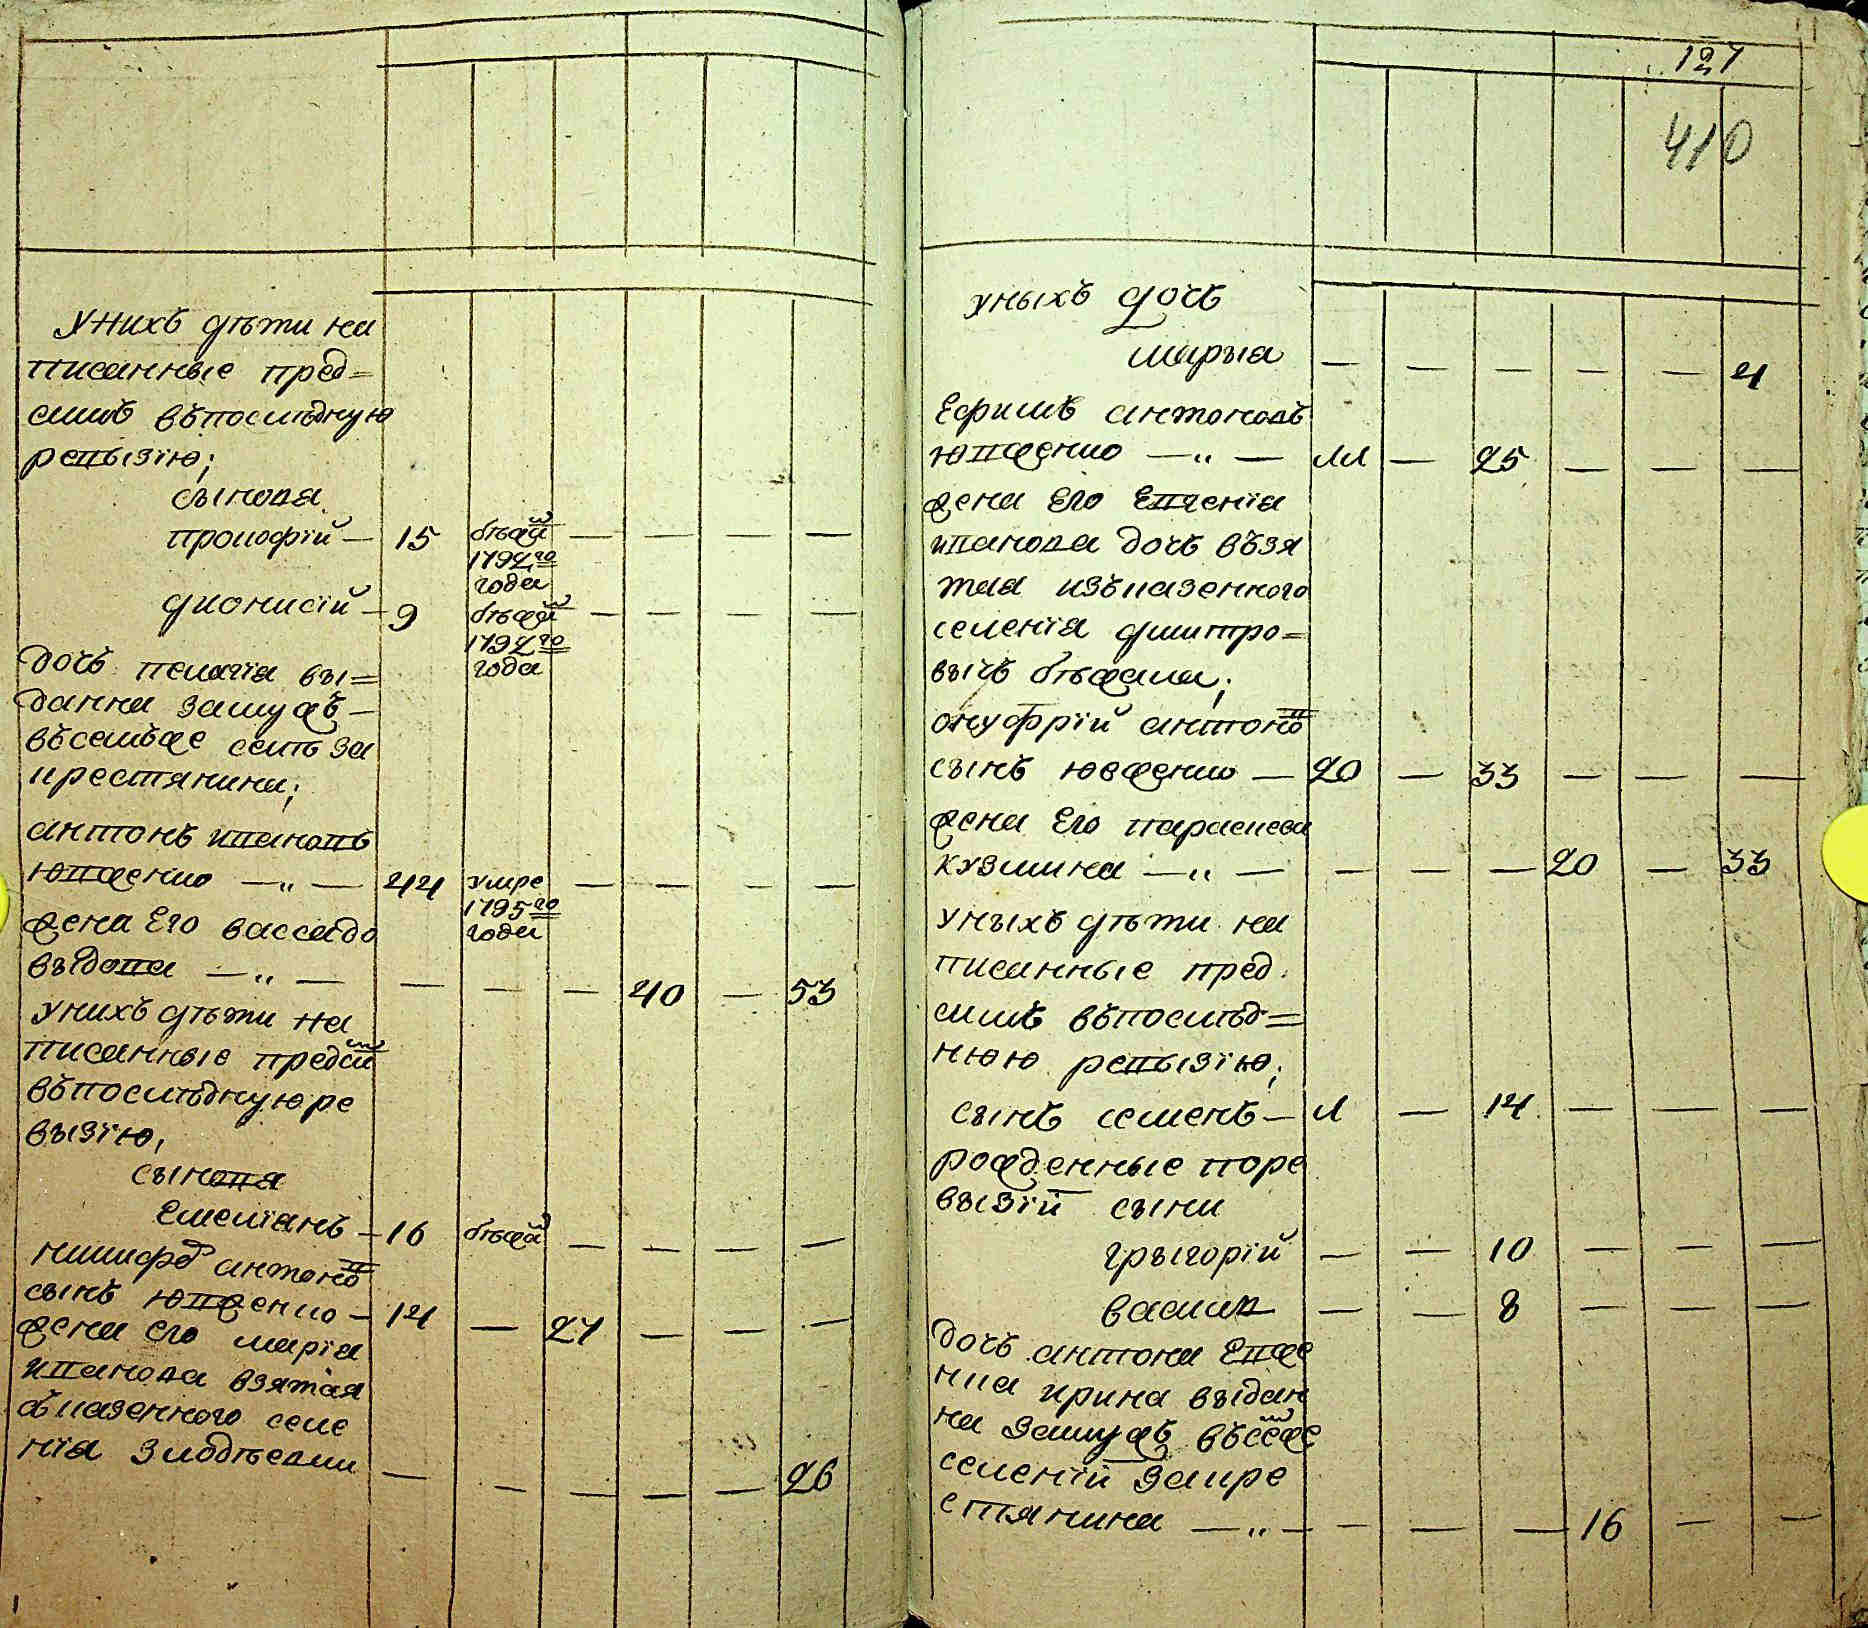 унихъ дѣти на
писанные пред=
симъ въпослѣдную
ревызію;
сынова
прокофій — 15 бѣжалъ — — — —
1792го
года
дионисій — 9 бѣжалъ — — — —
1792го
года
дочь пелагіа вы=
данна замужъ —
въсемъже селѣ за
крестянина;
антонъ ивановъ
ювженко — „ — 44 умре — — — —
1795го
года
жена Его васса до
выдова — „ — — — — 40 — 53
унихъ дѣти на
писанные предсим
въпослѣдную ре
вызію,
сынова
Емеліанъ — 16 бѣжал — — — —
никифоръ антонов
сынъ ювженко — 14 — 27 — — —
жена его маріа
иванова взятая
съказенного селе
ніа злодѣевки — — — — — 26
127
410
уныхъ дочь
марья — — — — — 4
Ефимъ антоновъ
ювженко — „ — 11 — 25 — — —
жена Его Евгеніа
иванова дочь възя
тая изъказенного
селеніа дмитро=
вычъ бѣжала;
онуфрій антонов
сынъ ювженко — 20 — 33 — — —
жена Его параскева
кузмина — „ — — — — 20 — 33
уныхъ дѣти на
писанные пред
симъ въпослѣд=
нюю ревызію;
сынъ семенъ — 1 — 14 — — —
рожденные поре
вызій сыни
грыгорій — — 10 — — —
васил — — 8 — — —
дочь антона Евже
нка ирина выдан
на замужъ въсемже
селеніи закре
стянина — „ — — — — 16 — —